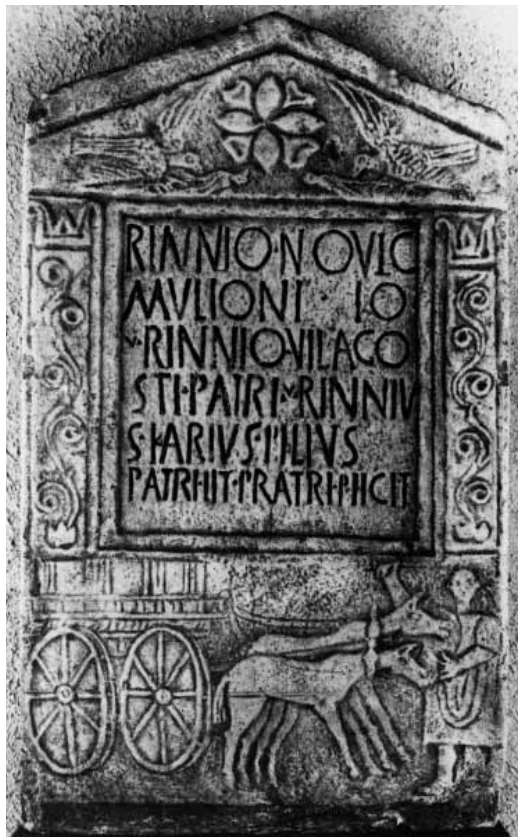 RINNIO·NOVIC
MVLIONI · LO
V·RINNIO·VILAGO
STI·PATRI·V·RINNIV
S·IARIVS·FILIVS
PATRI·IIT·FRATRI·FIICIT